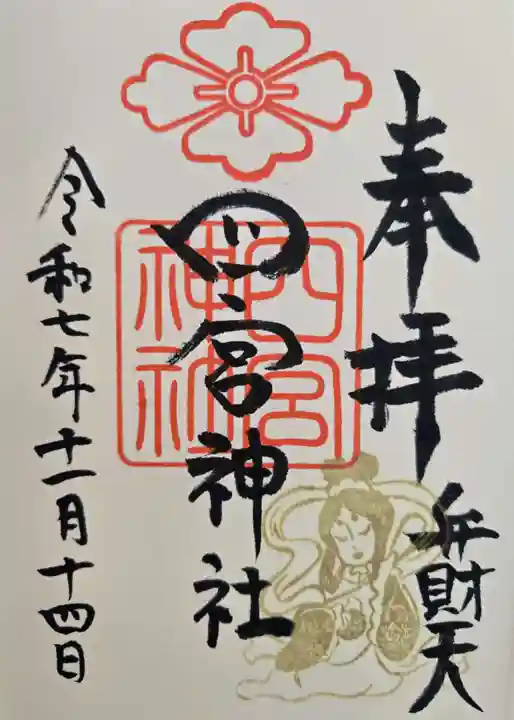 奉拝
弁財天
四宮神社
四宮
神社
令和七年十一月十四日